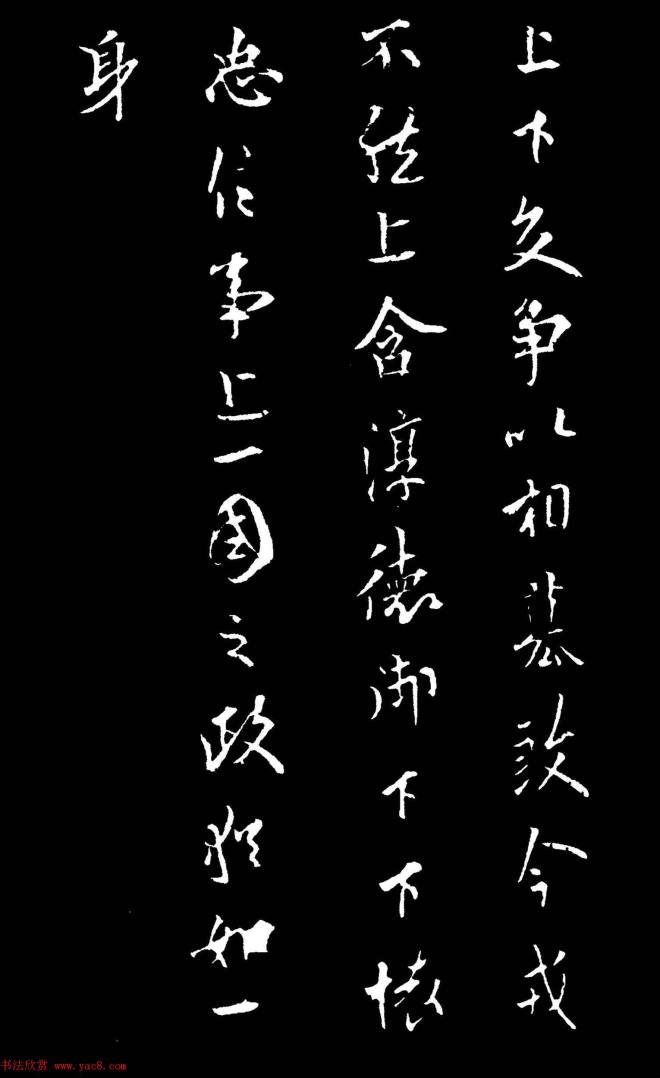 上下交争以相篡弑今戎
不然上含淳德御下下懷
忠信事上一國之政猶如一
身
书法欣赏 www.yac8.com